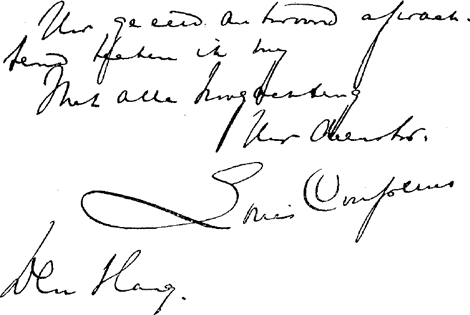 Uw geeerd antwoord afwach-
tend teken ik mij
Met alle hoogachting
Uw Dienstw.
Louis Couperus
Den Haag.